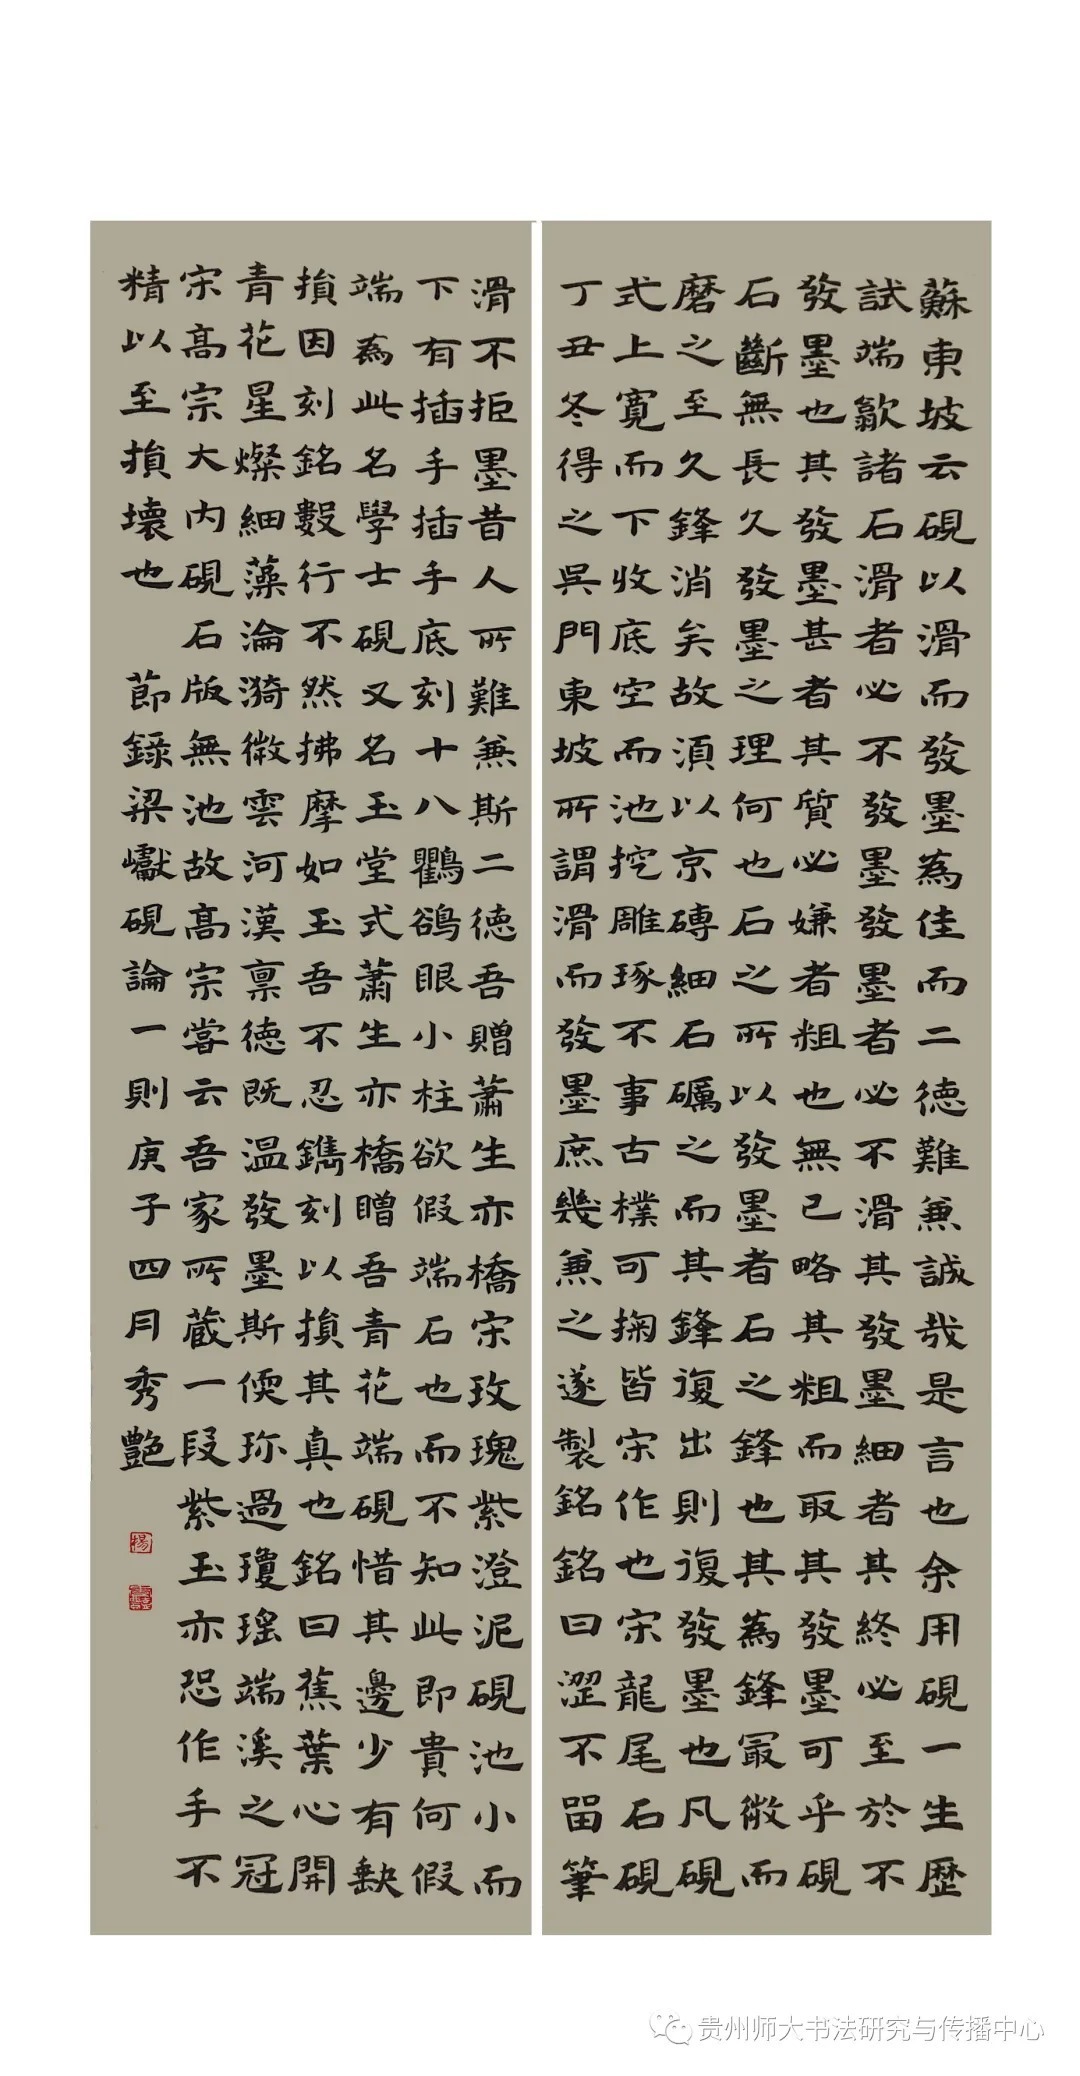 蘇東坡云硯以滑而發墨為佳而二德難兼誠哉是言也余用硯一生歷
試端歙諸石滑者必不發墨發墨者必不滑其發墨細者其終必至於不
發墨也其發墨甚者其質必嫌者粗也無已略其粗而取其發墨可乎硯
石斷無長久發墨之理何也石之所以發墨者石之鋒也其為鋒最微而
磨之至久鋒消矣故湏以京磚細石礪之而其鋒復出則復發墨也凡硯
式上寬而下收底空而池挖雕琢不事古樸可掬皆宋作也宋龍尾石硯
丁丑冬得之吳門東坡所謂滑而發墨庶幾兼之遂製銘銘曰澀不留筆
滑不拒墨昔人所難兼斯二德吾贈蕭生亦橋宋玫瑰紫澄泥硯池小而
下有插手插手底刻十八鸜鵒眼小柱欲假端石也而不知此即貴何假
端為此名學士硯又名玉堂式蕭生亦橋贈吾青花端硯惜其邊少有缺
損因刻銘數行不然拂摩如玉吾不忍鐫刻以損其真也銘曰蕉葉心開
青花星燦細藻淪漪微雲河漢禀德既溫發墨斯偄珎過瓊瑤端溪之冠
宋高宗大內硯石版無池故高宗嘗云吾家所藏一段紫玉亦恐作手不
精以至損壞也 節錄梁巘硯論一則庚子四月秀艷
贵州师大书法研究与传播中心